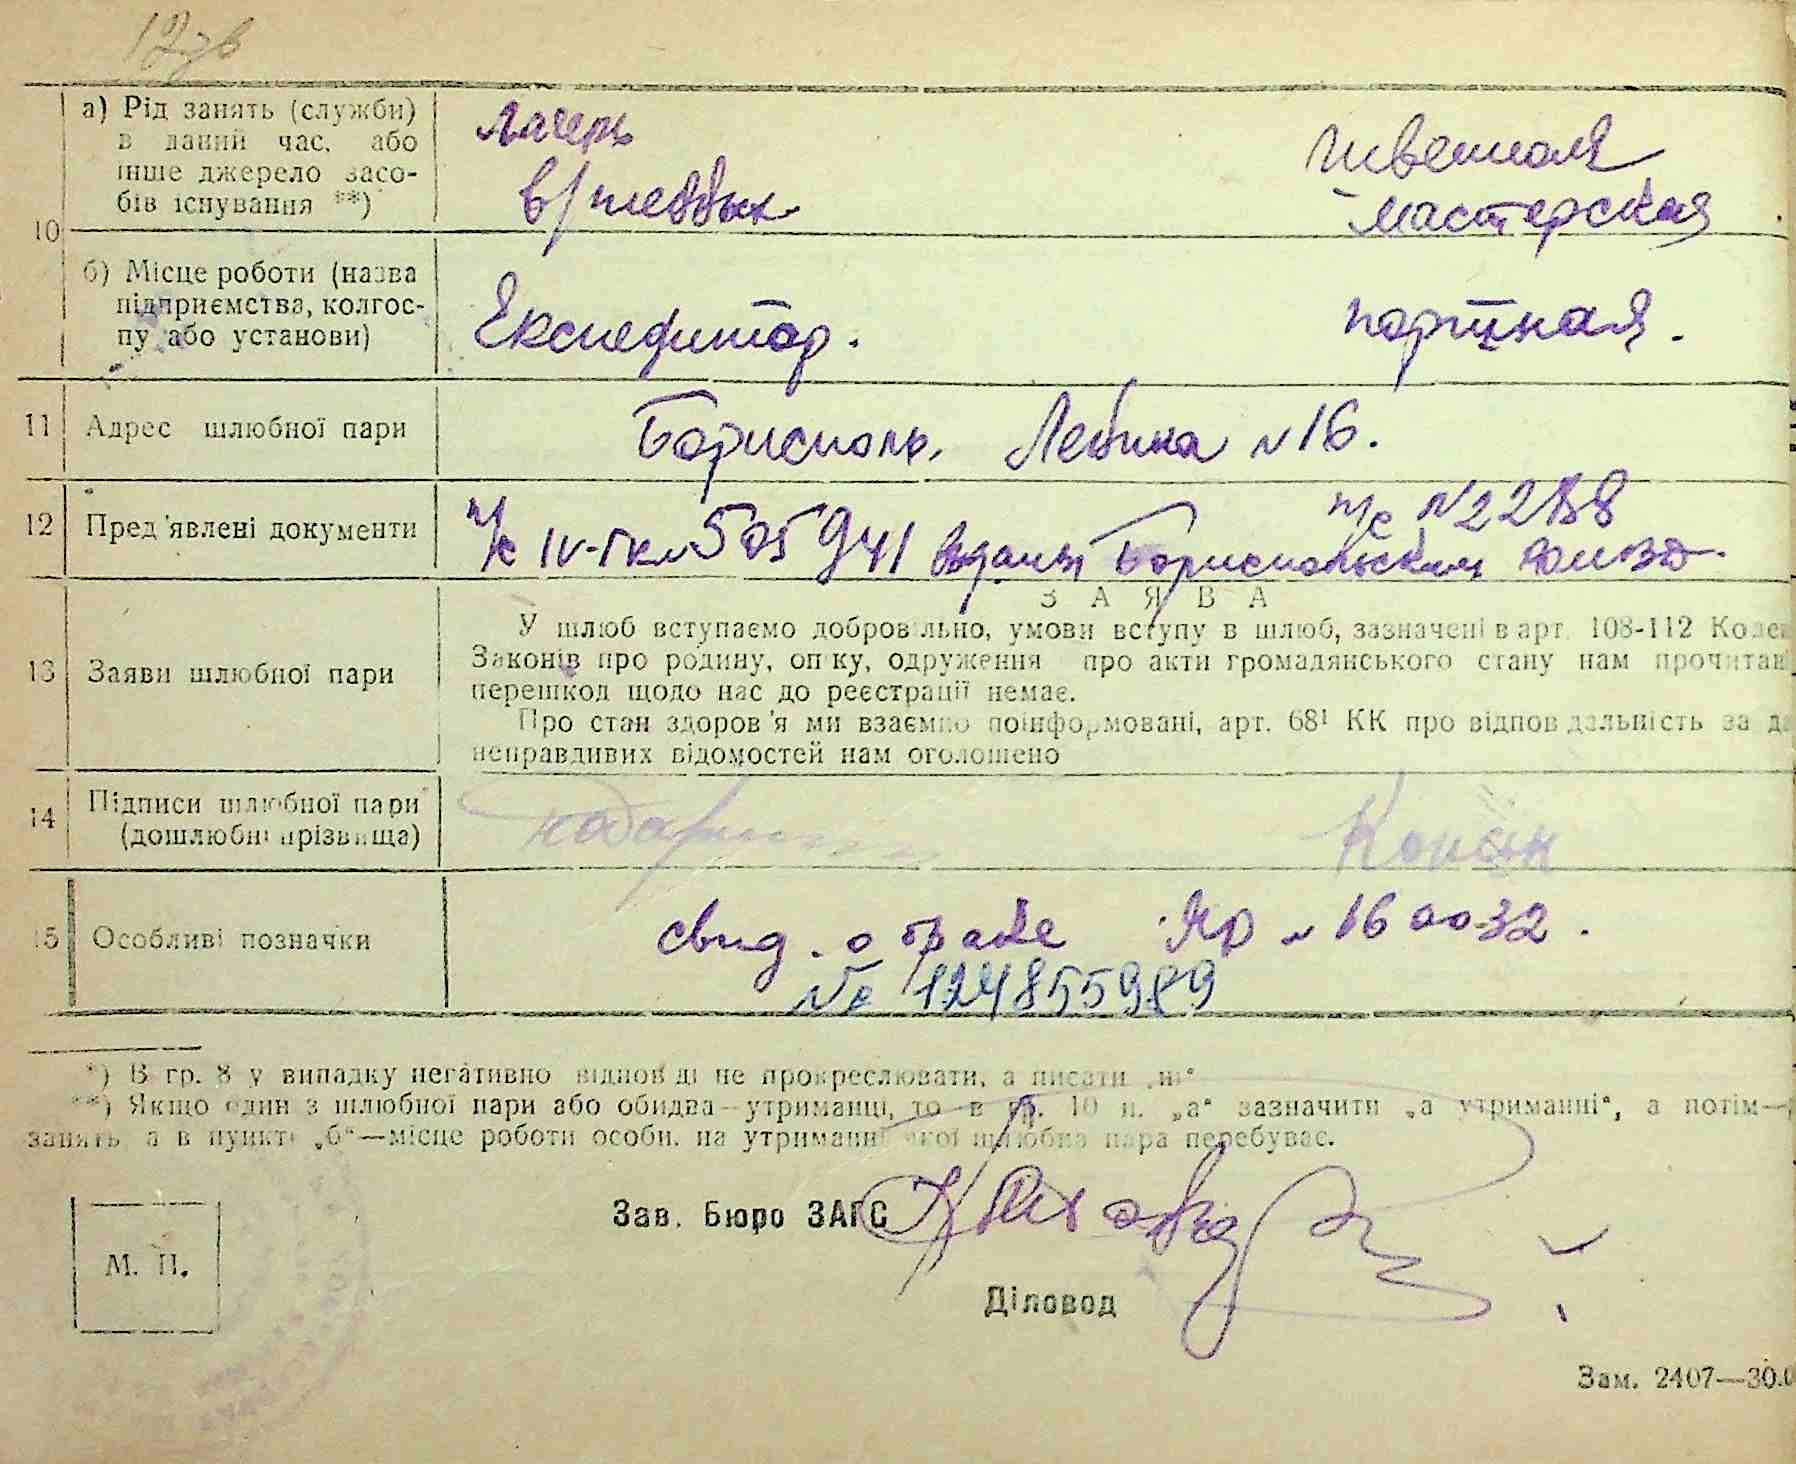 12зв
а) Рід занять (служби)
в даний час, або
інше джерело засо-
бів існування **)
Лагерь
в/пленных
Швейная
мастерская
10
б) Місце роботи (назва
підприємства, колгос-
пу або установи)
Експедитор.
портная.
11 Адрес шлюбної пари
Борисполь, Ленина №16.
12 Пред'явлені документи
п/с IV-ГК № 505941 выданы Бориспольским
п/с №2288
З А Я В А
13 Заяви шлюбної пари
У шлюб вступаємо добровільно, умови вступу в шлюб, зазначені в арт. 108-112 Кодек
Законів про родину, опіку, одруження про акти громадянського стану нам прочитані
перешкод щодо нас до реєстрації немає.
Про стан здоров'я ми взаємно поінформовані, арт. 68¹ КК про відповідальність за да
неправдивих відомостей нам оголошено
14 Підписи шлюбної пари
(дошлюбні прізвища)
15 Особливі позначки
свид. о браке ЯР № 160032.
№ 124855989
*) В гр. 8 у випадку негативно відповіді не прокреслювати, а писати „ні“
**) Якщо один з шлюбної пари або обидва—утриманці, то в гр. 10 п. „а“ зазначити „а утриманні“, а потім—
занять, а в пункті „б“—місце роботи особи, на утриманні якої шлюбна пара перебуває.
Зав. Бюро ЗАГС
М. П.
Діловод
Зам. 2407—30.0